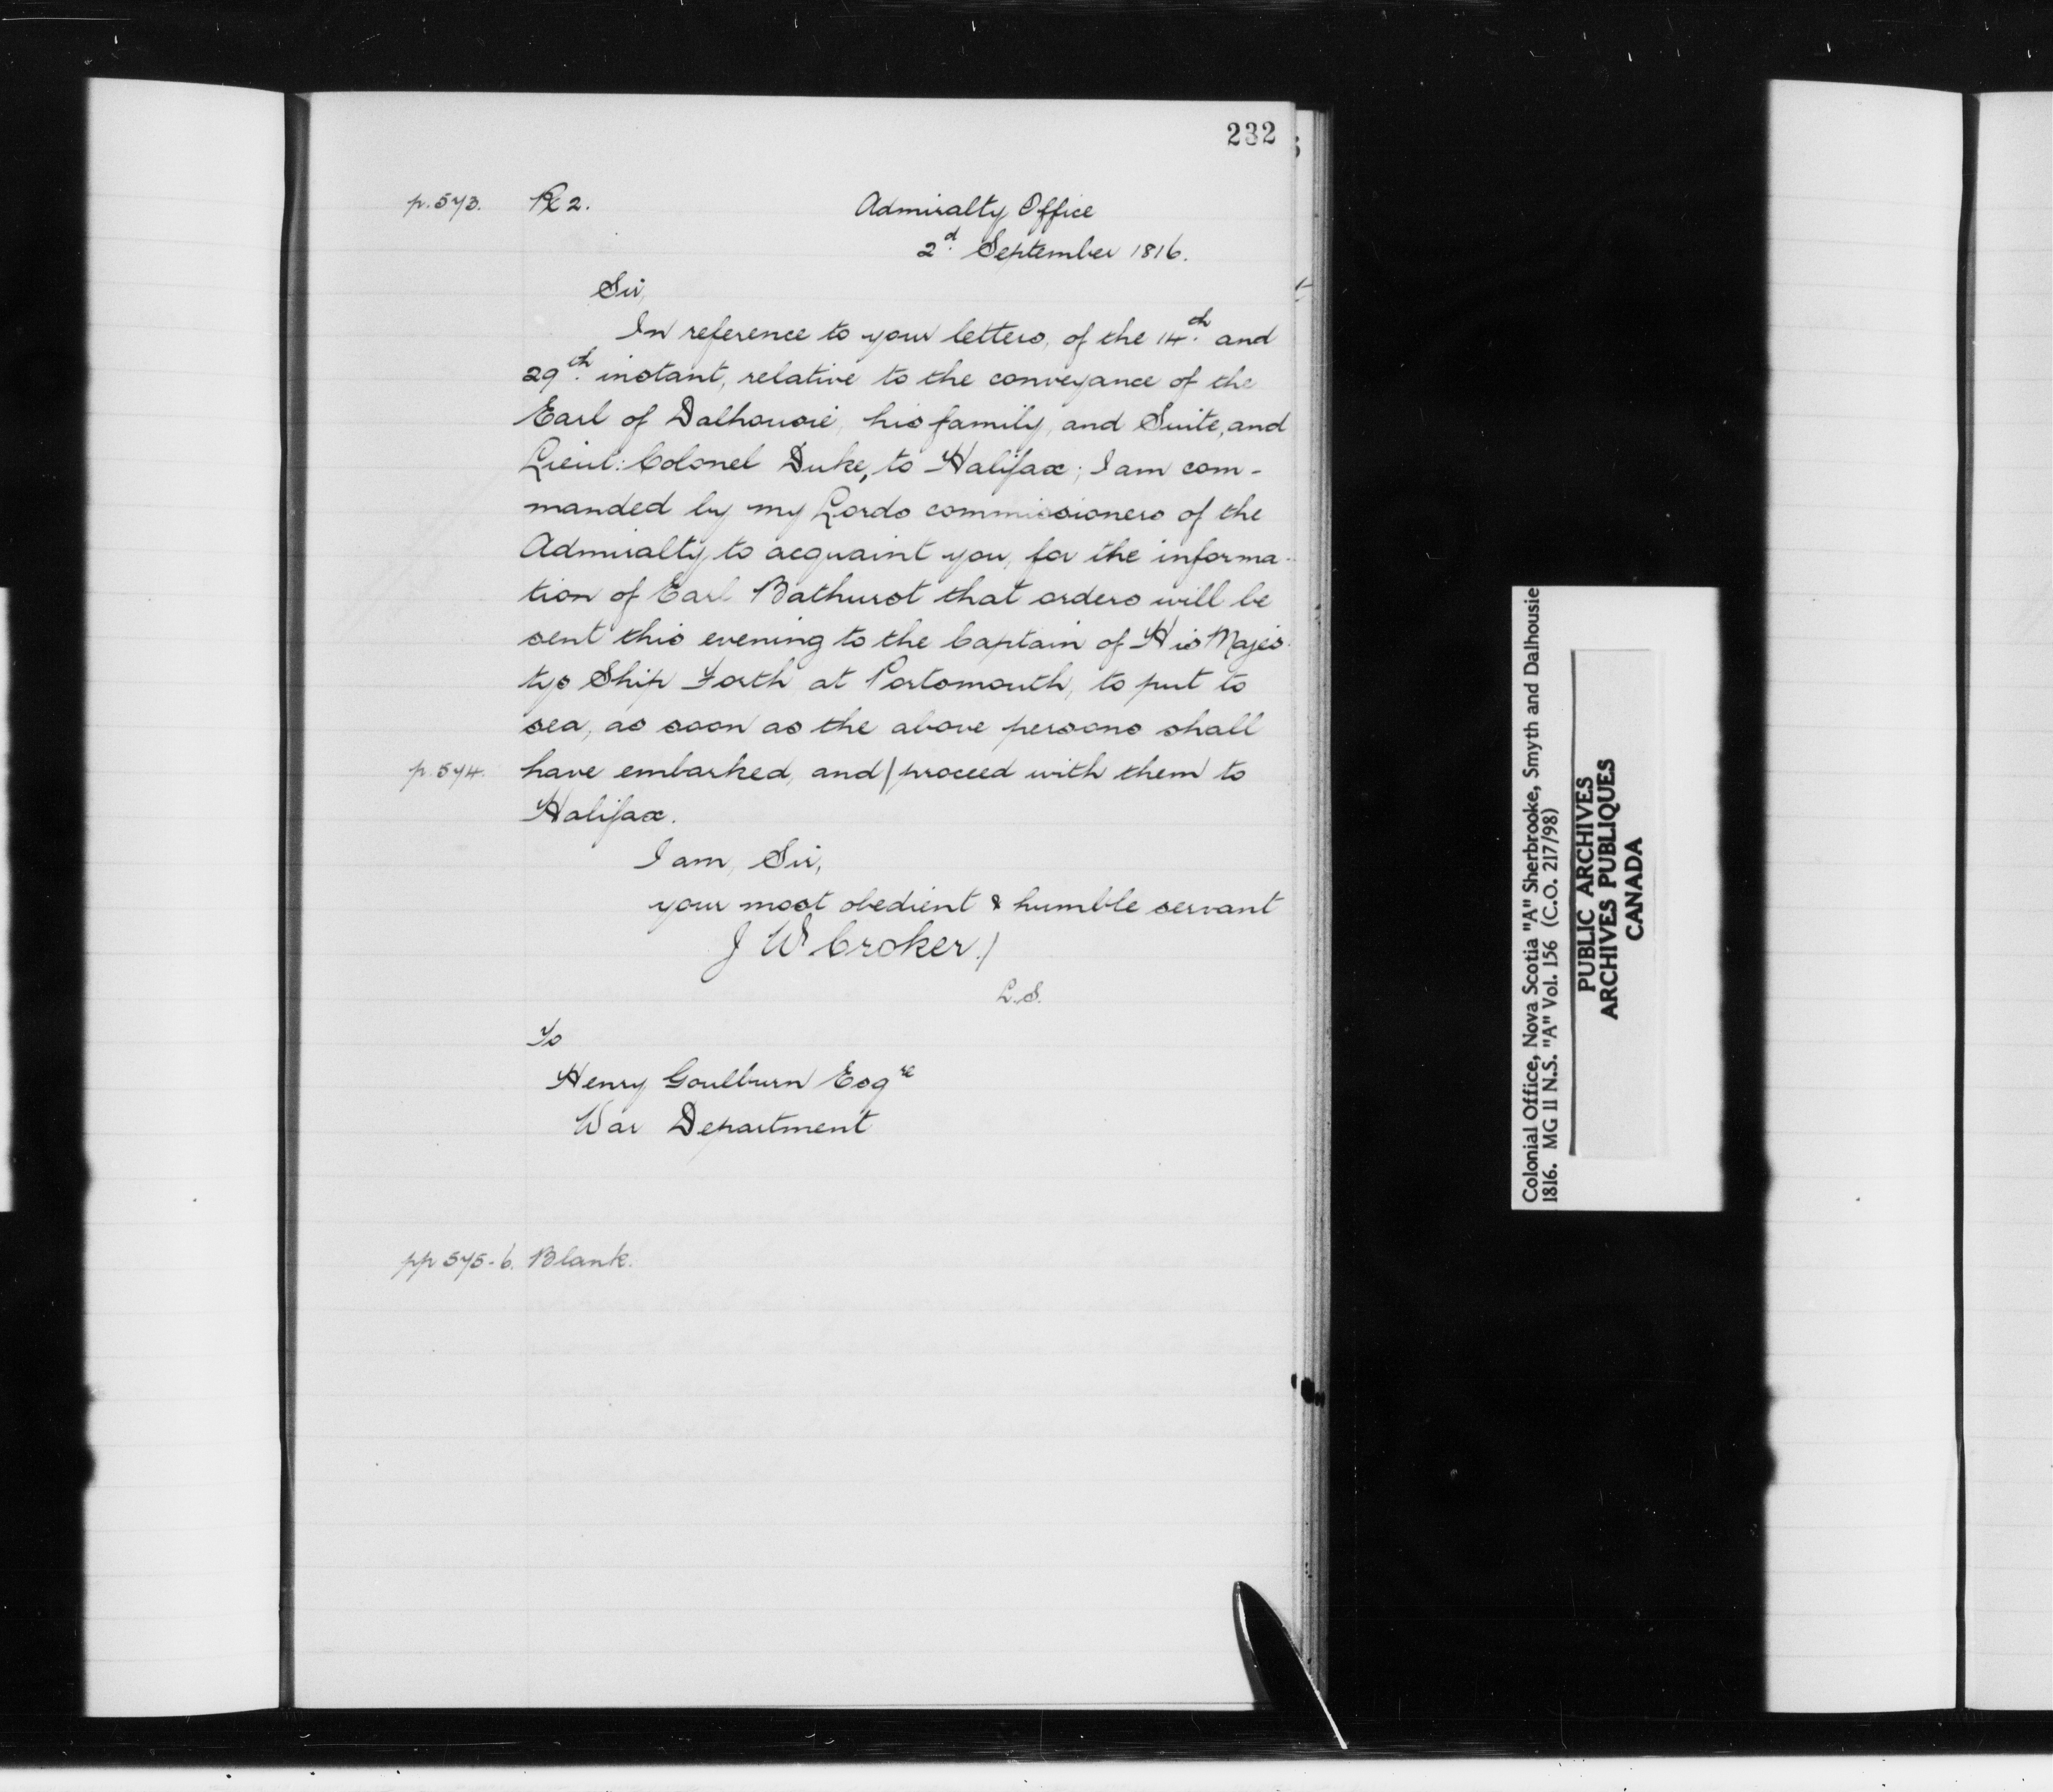 232
p. 573. Rx 2. Admiralty Office
2d. September 1816.
Sir,
In reference to your letters, of the 14th. and
29th. instant, relative to the conveyance of the
Earl of Dalhousie, his family, and Suite, and
Lieut: Colonel Duke, to Halifax; I am com-
manded by my Lords commissioners of the
Admiralty, to acquaint you, for the informa-
tion of Earl Bathurst that orders will be
sent this evening to the Captain of His Majes-
tys Ship Forth at Portsmouth, to put to
sea, as soon as the above persons shall
p. 574. have embarked, and/proceed with them to
Halifax.
I am, Sir,
your most obedient & humble servant
J W Croker./
L.S.
To
Henry Goulburn Esqre
War Department
pp 575-6. Blank.
Colonial Office, Nova Scotia "A" Sherbrooke, Smyth and Dalhousie
1816. MG 11 N.S. "A" Vol. 156 (C.O. 217/98)
PUBLIC ARCHIVES
ARCHIVES PUBLIQUES
CANADA